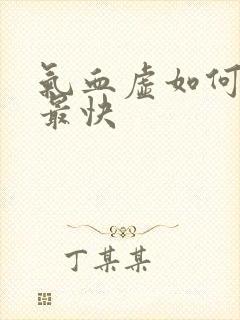 氣血虛如何
最快
丁某某